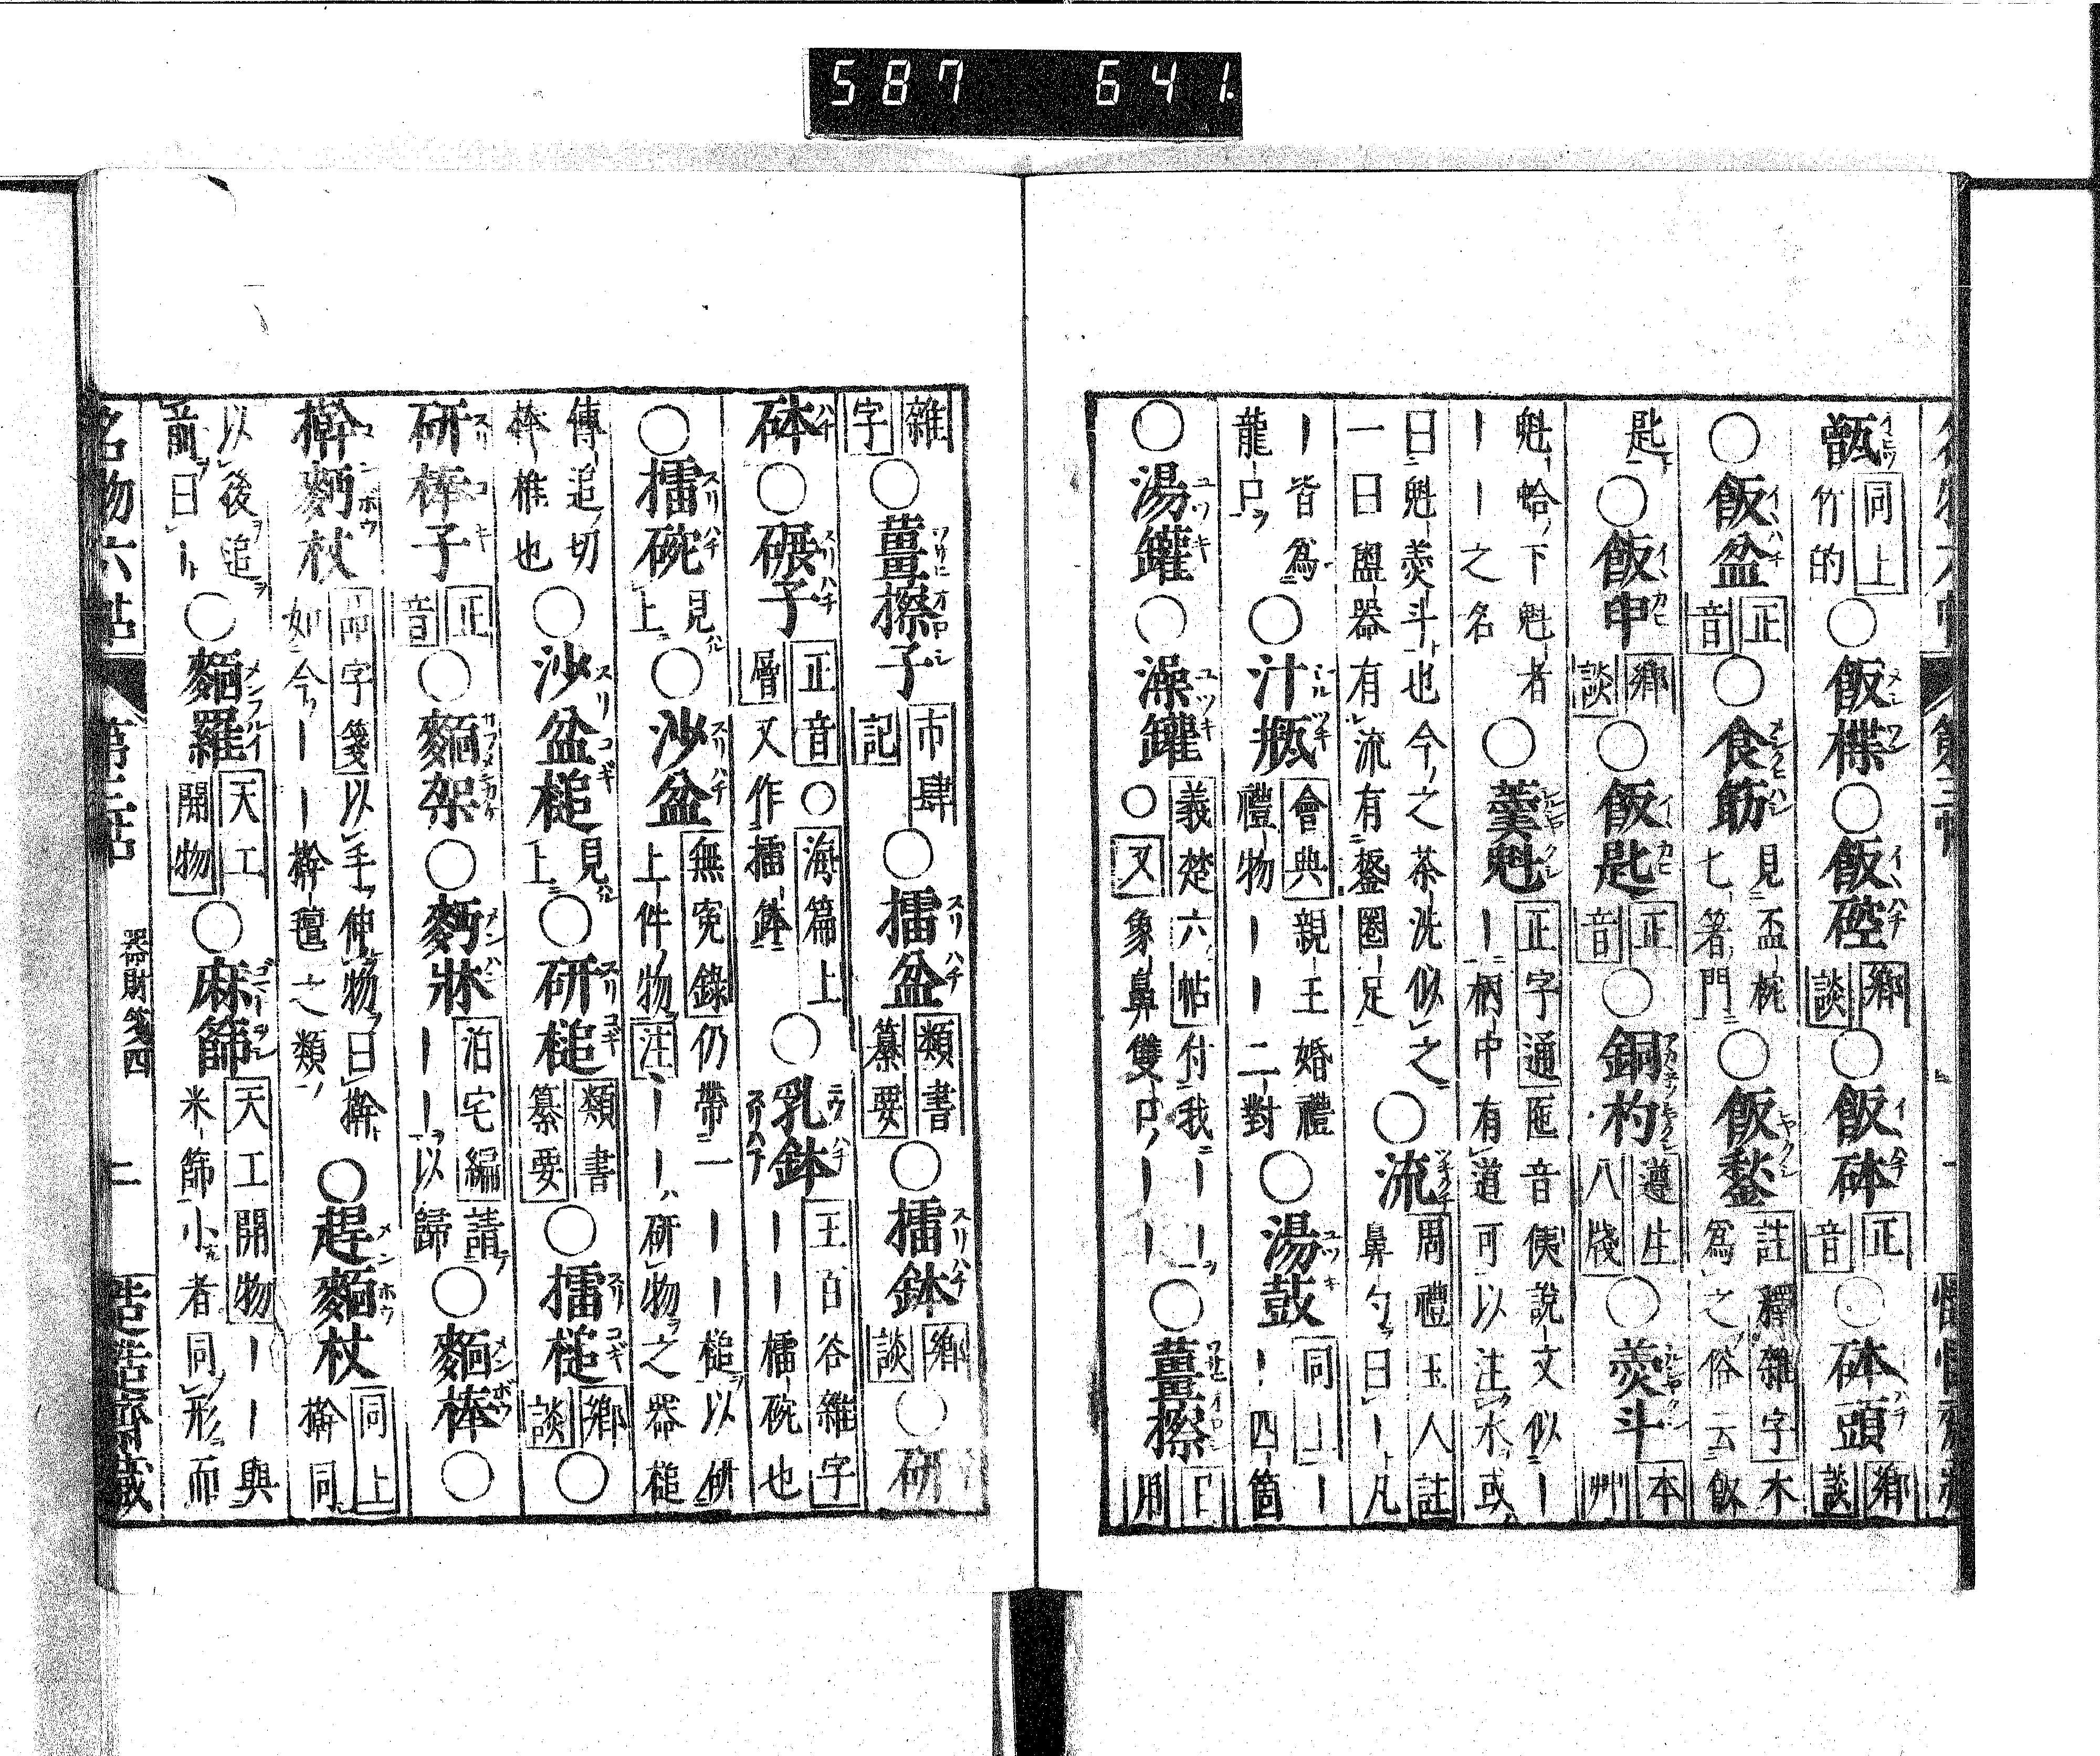 587 641.
甑 同上 竹的 ○飯楪 ○飯硿 鄉談 ○飯砵 正音 ○砵頭 鄉談
○飯盆 正音 ○食筯 見盃椀匕箸門 ○飯鍫 註釋雜字 木爲之俗云飯
匙 ○飯申 鄉談 ○飯匙 正音 ○銅杓 遵生八牋 ○羮斗 本艸
魁蛤下魁者丨丨之名 ○羹魁 正字通 匜音侇說文似丨丨柄中有道可以注水或
曰魁羮斗也今之茶洗似之一曰盥器有流有鋬圈足 ○流 周禮玉人註 鼻勺曰丨凡
丨皆爲龍口 ○汁瓶 會典 親王婚禮禮物丨丨二對 ○湯鼓 同上 丨丨四箇
○湯罐 ○澡罐 義楚六帖 付我丨丨○又象鼻雙口丨丨 ○薑擦
雜字 ○薑擦子 市肆記 ○擂盆 類書纂要 ○擂鉢 鄉談 ○研
砵 ○碾子 正音○海篇上層 又作擂鉢 ○乳鉢 王百谷雜字 丨丨擂碗也
○擂碗 見上 ○沙盆 無寃錄 仍帶一丨丨槌以研上件物 注 丨丨研物之器槌
傳追切棒椎也 ○沙盆槌 見上 ○研槌 類書纂要 ○擂槌 鄉談 ○
研棒子 正音 ○麵架 ○麪牀 泊宅編 請丨丨以歸 ○麵棒 ○
擀麪杖 品字箋 以手伸物曰擀如今丨丨擀氊之類 ○趕麵杖 同上 擀同
以後追前曰丨 ○麵羅 天工開物 ○麻篩 天工開物 丨丨與米篩小者同形而
名物六帖 第三帖 器財箋四 二